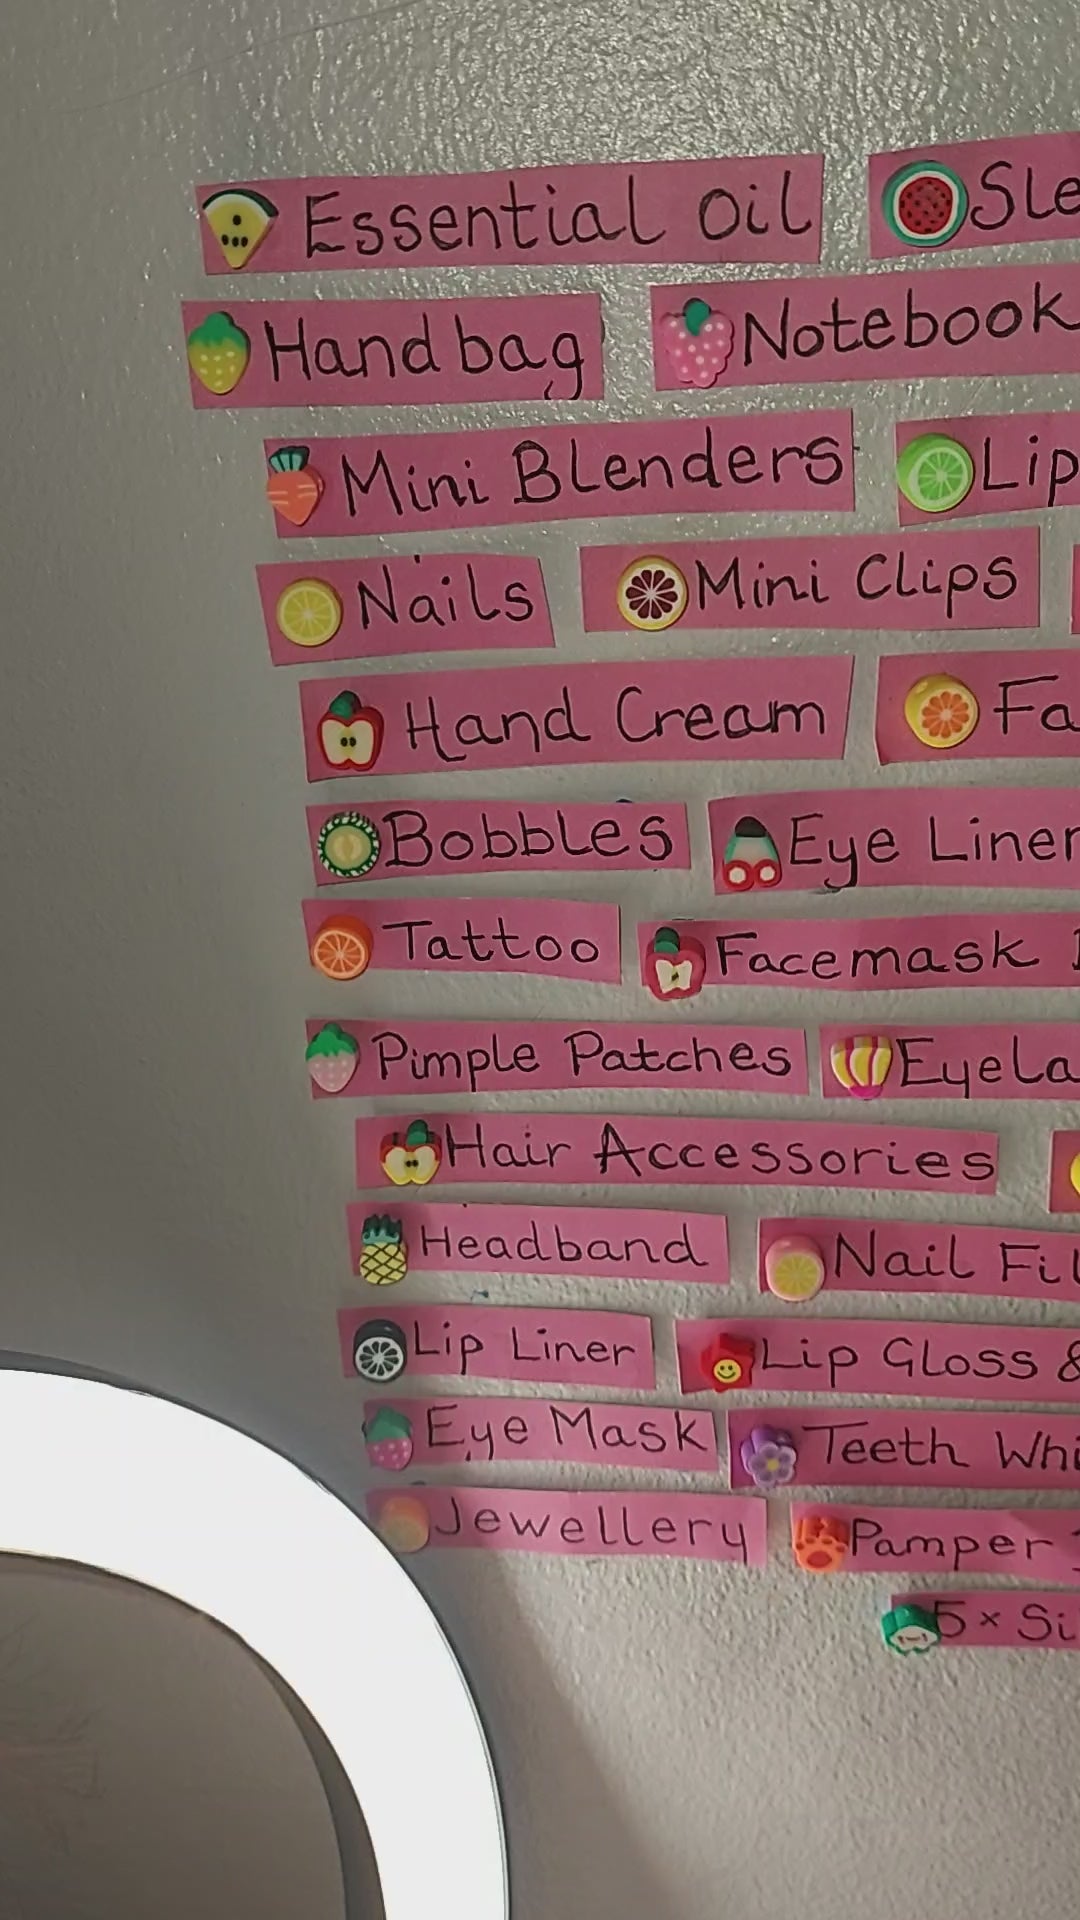 Essential oil
Handbag Notebook
Mini Blenders Lip
Nails Mini Clips
Hand Cream
Bobbles Eye Liner
Tattoo Facemask
Pimple Patches
Hair Accessories
Headband Nail
Lip Liner Lip Gloss &
Eye Mask Teeth
Jewellery Pamper
5 ×